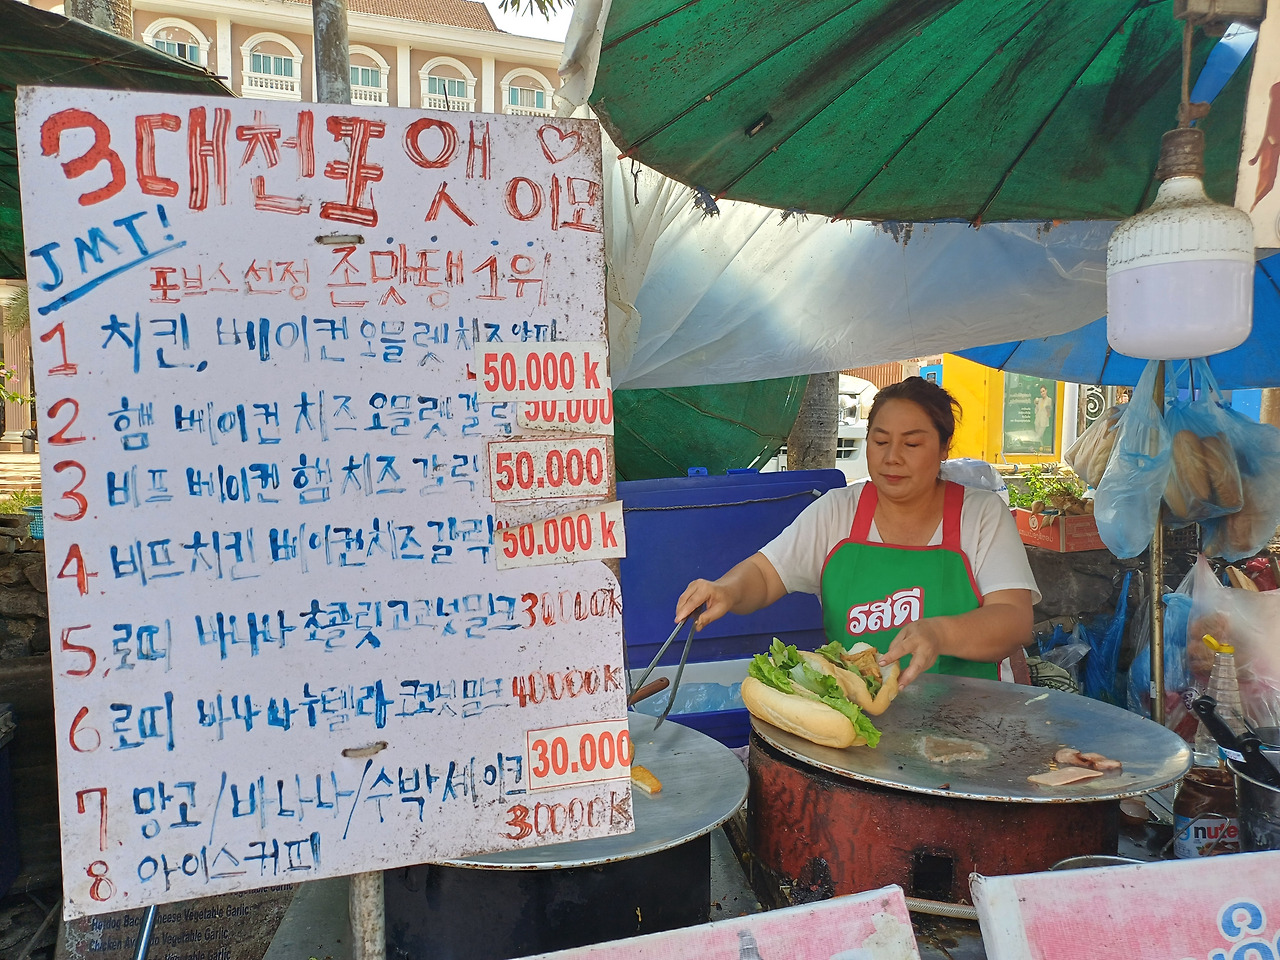 3대천왕 앳
이모
JMT!
포브스선정 존맛탱 1위
1 치킨, 베이컨 오믈렛 치즈 양파 50.000 k
2. 햄 베이컨 치즈 오믈렛 갈릭 50.000
3. 비프 베이켄 햄 치즈 갈릭 50.000
4 비프 치킨 베이컨 치즈 갈릭 50.000 k
5. 로띠 바나나 초콜릿 코코넛밀크 30000k
6 로띠 바나나 누텔라 코코넛밀크 40000k
7. 망고/바나나/수박 세이크 30.000
8. 아이스커피 30000k
รสดี
nute
Hotdog Bacon Cheese Vegetable Garlic
Chicken Avocado Vegetable Garlic
Vegetable Garlic